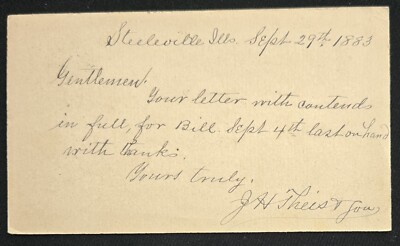 Steeleville Ills. Sept 29th 1883
Gentlemen.
Your letter with contends
in full, for Bill Sept 4th last on hand
with thanks.
Yours truly.
J H Theis & Son